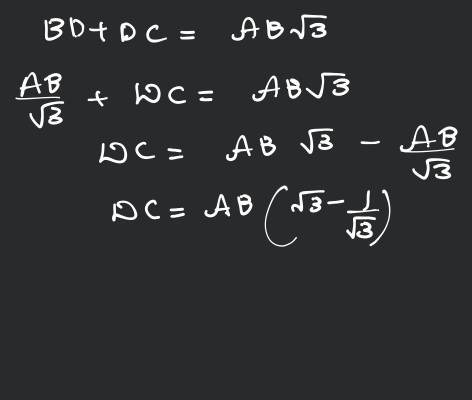 BD + DC = AB√3
AB/√3 + DC = AB√3
DC = AB √3 - AB/√3
DC = AB (√3 - 1/√3)